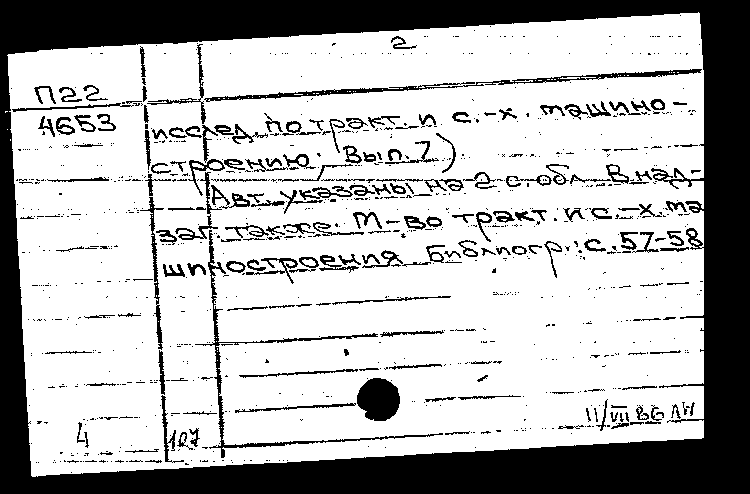 2
П22
4653
исслед. по тракт. и с.-х. машино-
строению; Вып. 7)
Авт. указаны на 2 с. обл. В над-
заг. также: М-во тракт. и с.-х. ма
шиностроения. Библиогр.: с. 57-58
4 107
11/VII 86